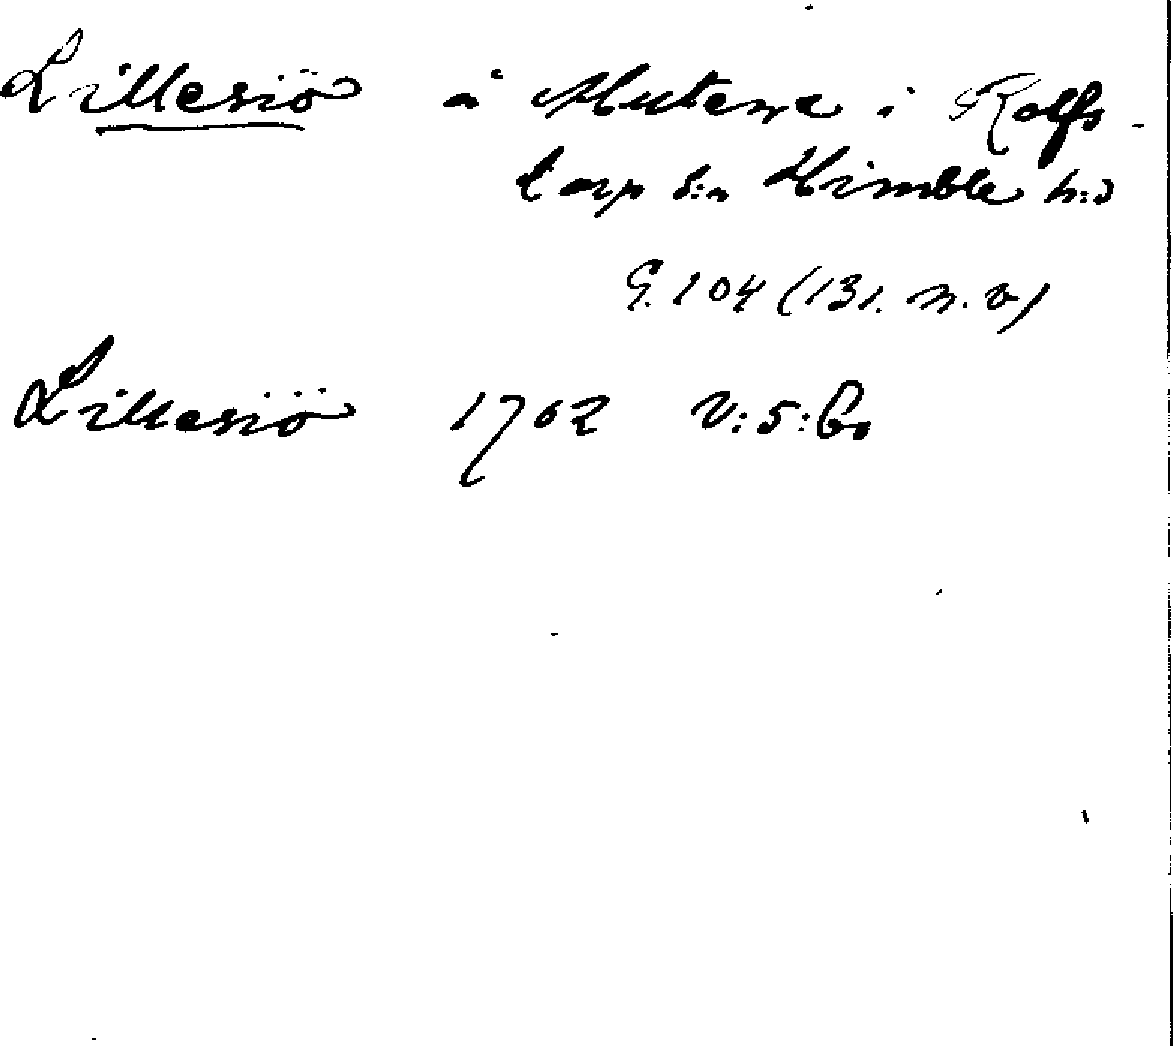 Lillesiö å Mutene i Rolfs-
torp s:n Himble h:d
G. 104 (131. n. v)
Lillesiö 1762 V:5:6.